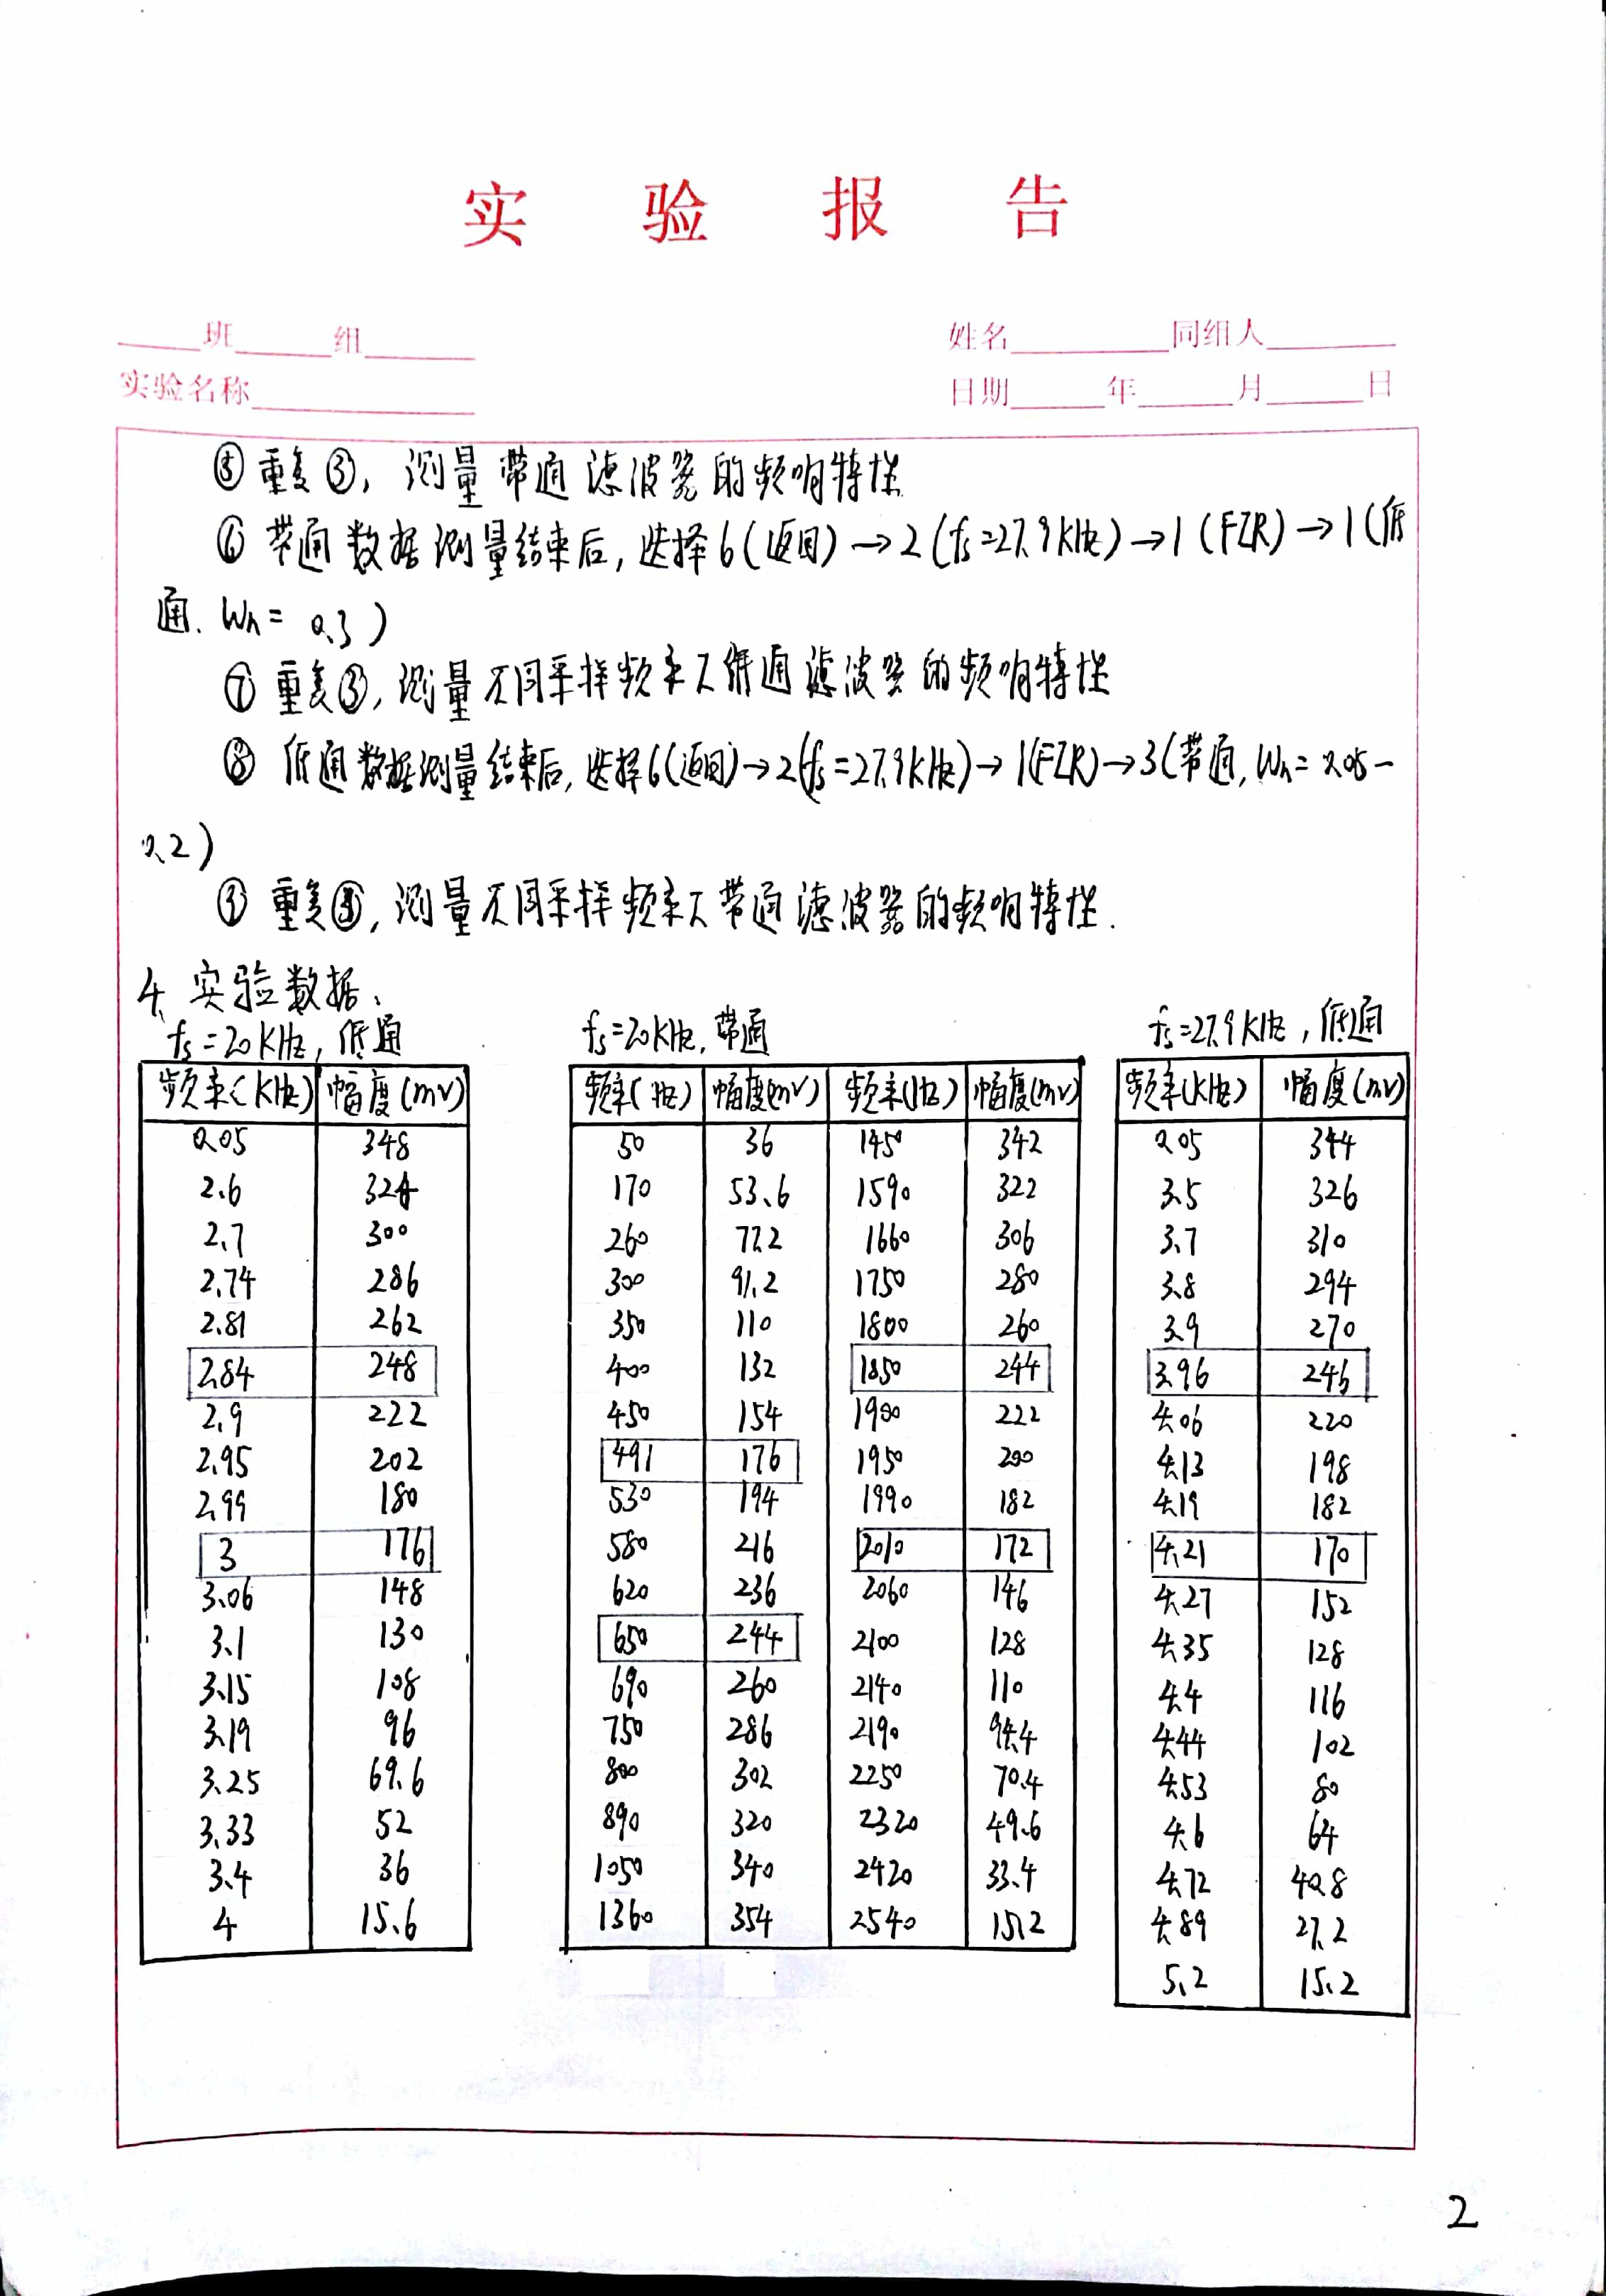 实验报告
____班______组_______ 姓名__________同组人________
实验名称______________ 日期______年______月______日
⑤ 重复③, 测量带通滤波器的频响特性
⑥ 带通数据测量结束后, 选择6(返回)→2(fs=27.9kHz)→1(FIR)→1(低
通. Wn= 0.3)
⑦ 重复③, 测量不同采样频率下低通滤波器的频响特性
⑧ 低通数据测量结束后, 选择6(返回)→2(fs=27.9kHz)→1(FIR)→3(带通, Wn=0.05-
0.2)
重复, 测量不同采样频率下带通滤波器的频响特性.
4. 实验数据、
fs=20kHz, 低通
频率(kHz) 幅度(mv)
0.05 348
2.6 324
2.7 300
2.74 286
2.81 262
2.84 248
2.9 222
2.95 202
2.99 180
3 176
3.06 148
3.1 130
3.15 108
3.19 96
3.25 69.6
3.33 52
3.4 36
4 15.6
fs=20kHz, 带通
频率(Hz) 幅度(mv) 频率(Hz) 幅度(mv)
50 36 1450 342
170 53.6 1590 322
260 77.2 1660 306
300 91.2 1750 280
350 110 1800 260
400 132 1850 244
450 154 1900 222
491 176 1950 200
530 194 1990 182
580 216 2010 172
620 236 2060 146
650 244 2100 128
690 260 2140 110
750 286 2190 94.4
800 302 2250 70.4
890 320 2320 49.6
1050 340 2420 33.4
1360 354 2540 15.2
fs=27.9kHz, 低通
频率(kHz) 幅度(mv)
0.05 344
3.5 326
3.7 310
3.8 294
3.9 270
3.96 246
4.06 220
4.13 198
4.19 182
4.21 170
4.27 152
4.35 128
4.4 116
4.44 102
4.53 80
4.6 64
4.72 40.8
4.89 27.2
5.2 15.2
2